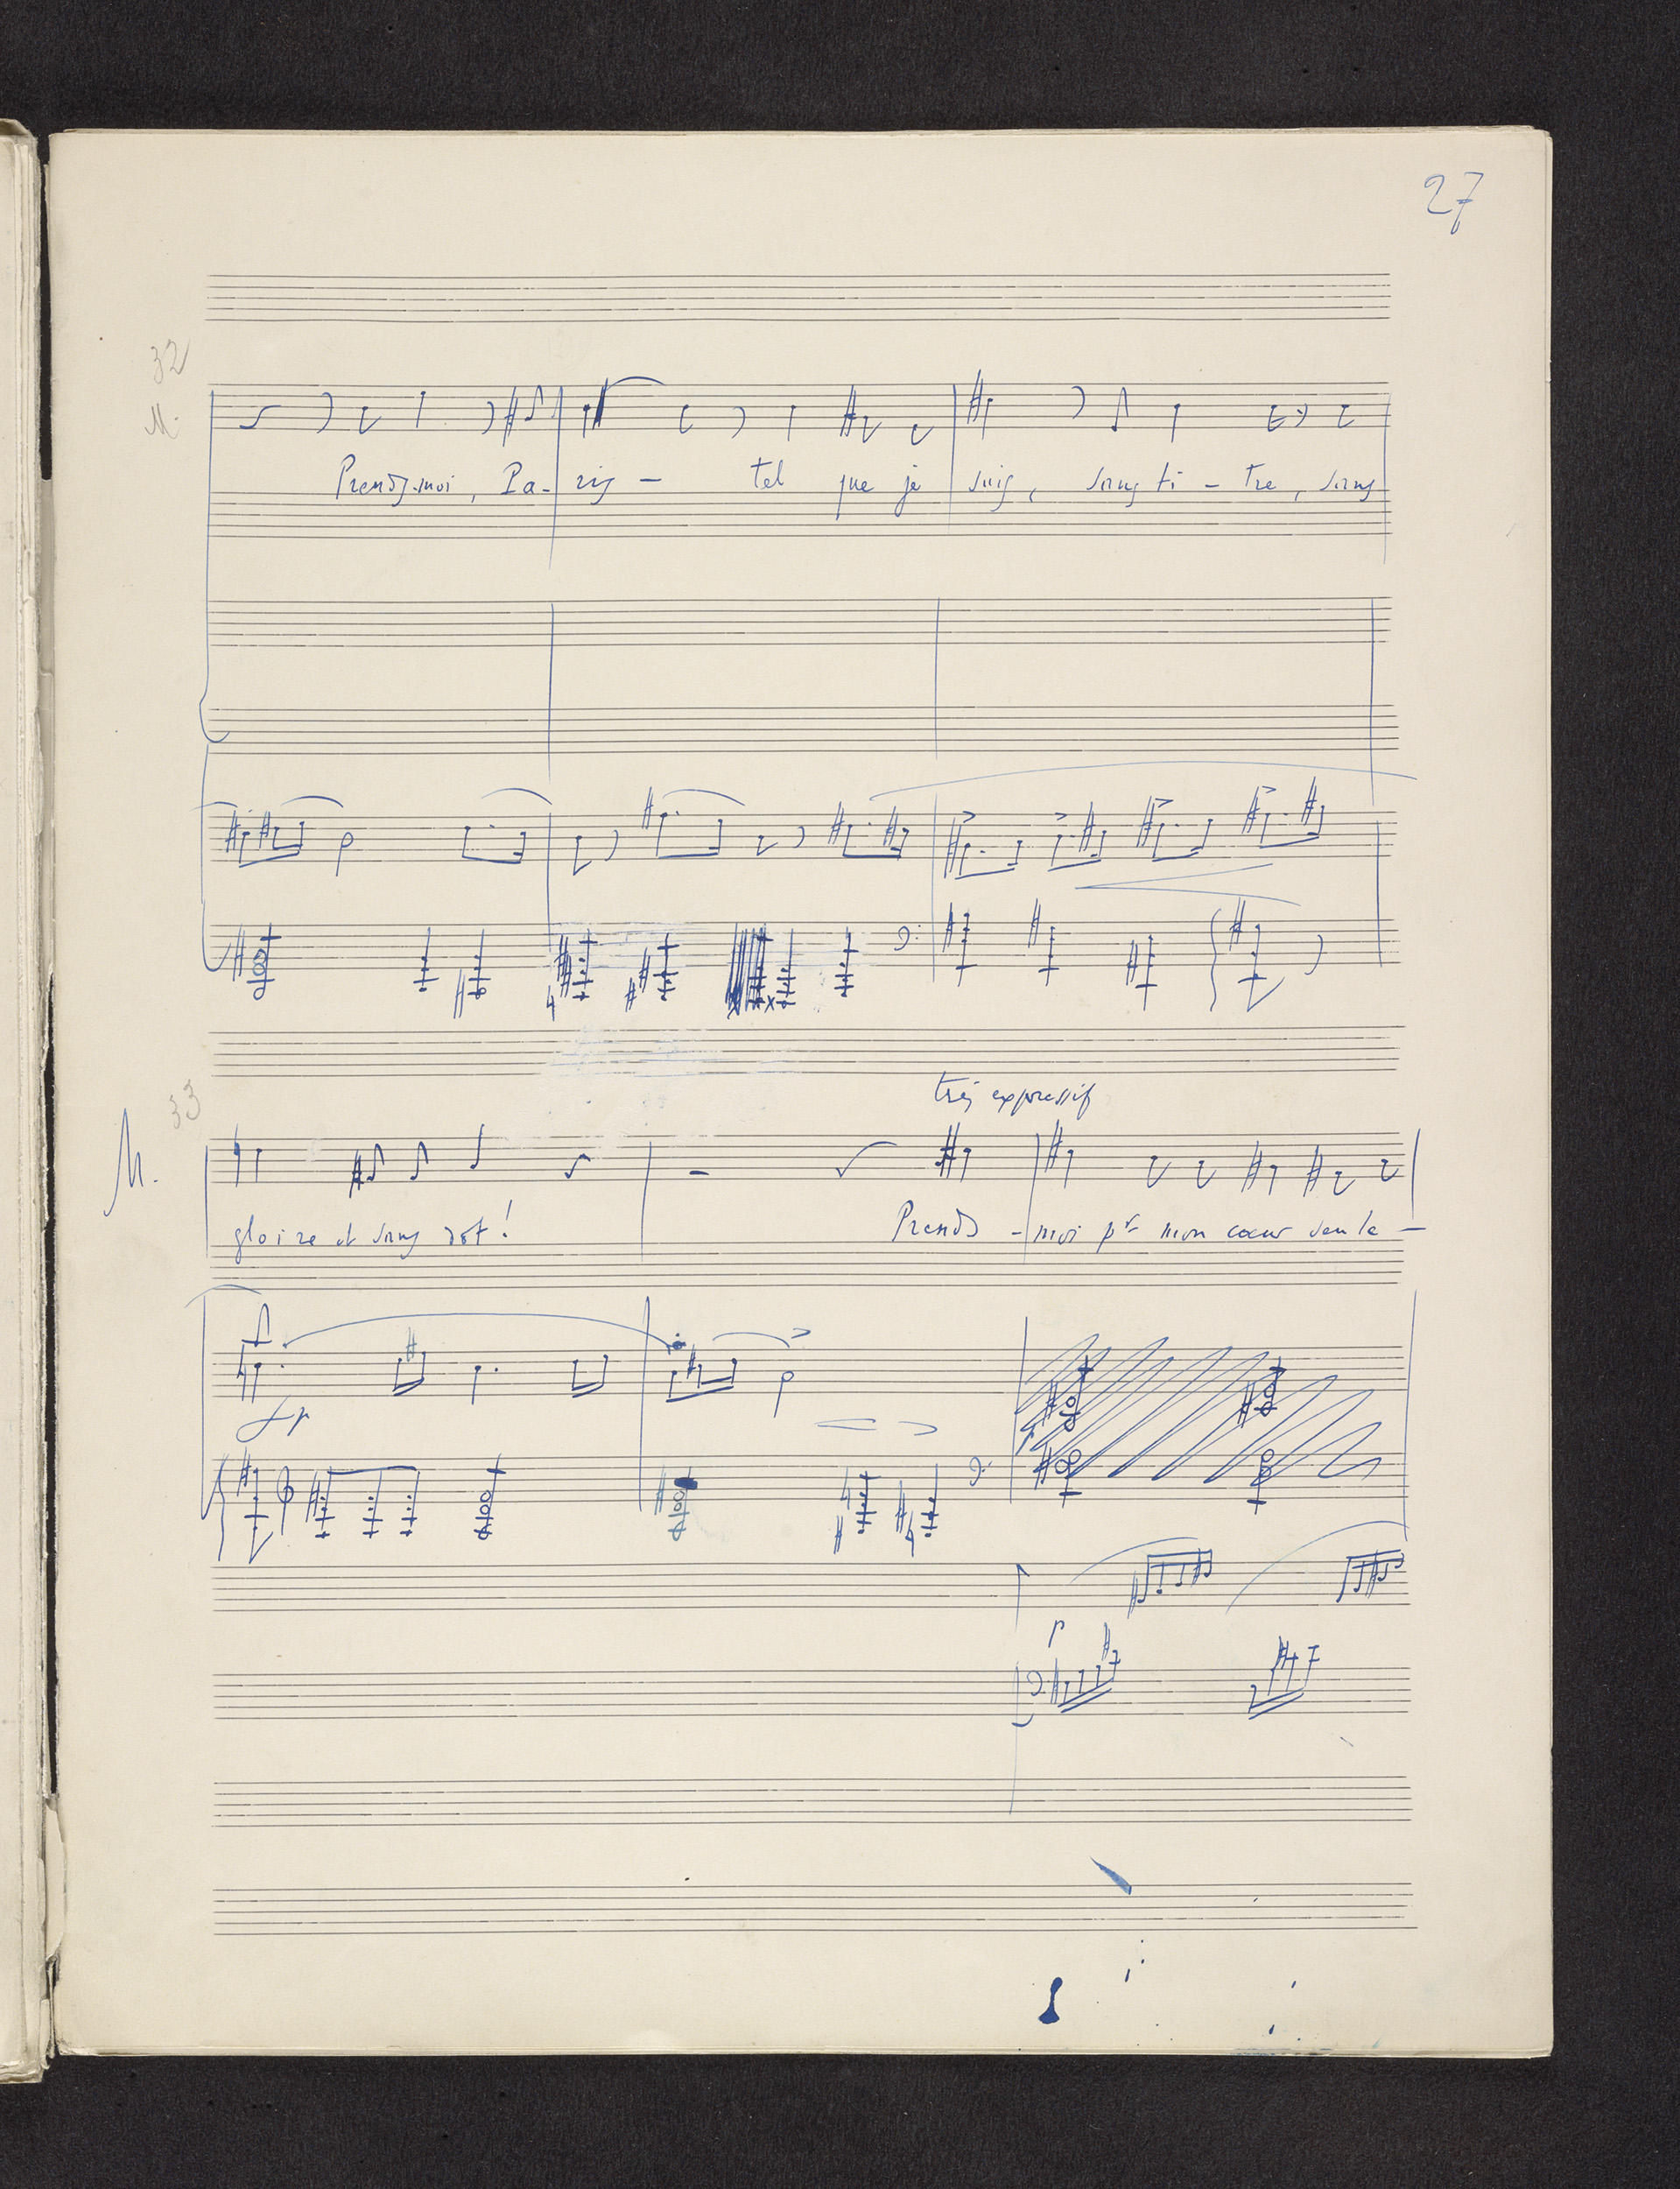 27
32
M.
Prends-moi, Pa-ris – tel que je suis, sans ti-tre, sans
33
très expressif
M.
gloire et sans dot! Prends-moi pr mon cœur seule-
fp
p